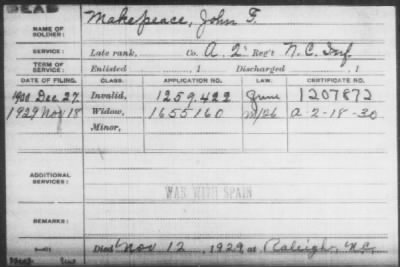 DEAD
NAME OF SOLDIER: Makepeace, John F.
SERVICE: Late rank, Co. A. 2" Reg't N.C. Inf
TERM OF SERVICE: Enlisted , 1 Discharged , 1
DATE OF FILING. CLASS. APPLICATION NO. LAW. CERTIFICATE NO.
1900 Dec 27. Invalid, 1259.422 June 1207872
1929 Nov 18 Widow, 1655160 A-2-18-30
Minor,
ADDITIONAL SERVICES:
WAR WITH SPAIN
REMARKS:
Died Nov. 12, 1929, at Raleigh, N.C.